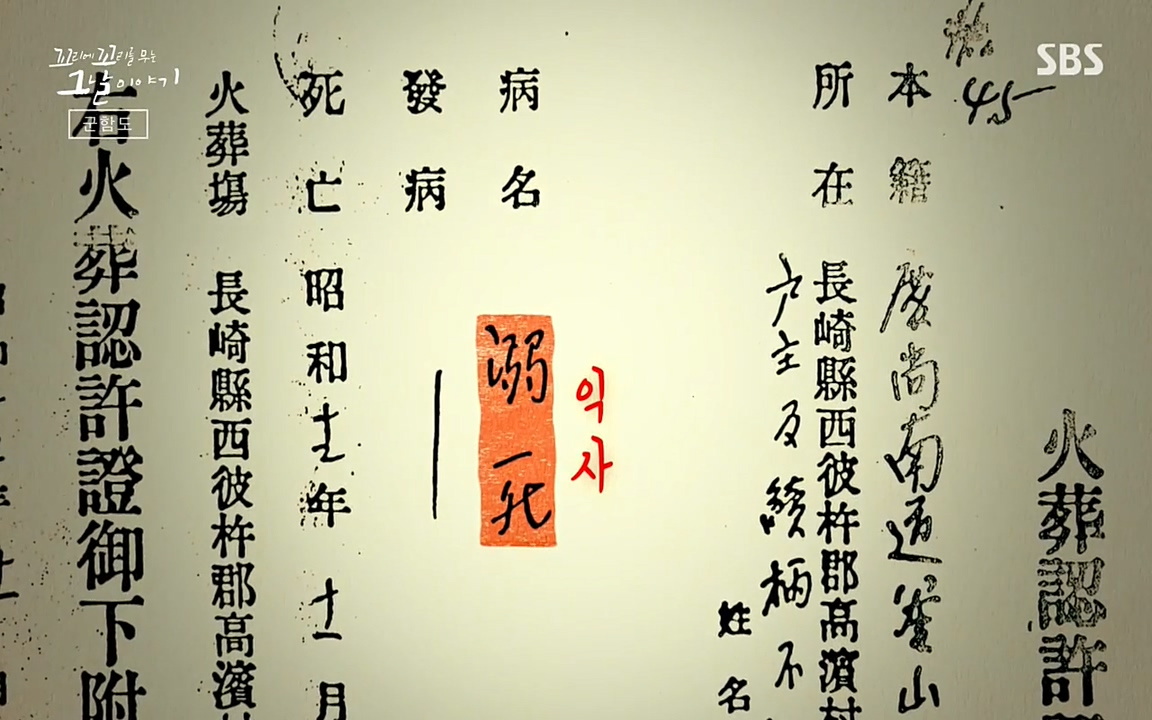 꼬리에 꼬리를 무는
그날 이야기
군함도
SBS
45
火葬認許
本籍 慶尚南道釜山
所在 長崎縣西彼杵郡高濱村
戶主及續柄不
姓名
病名 溺死
익사
發病
死亡 昭和十七年 十一月
火葬場 長崎縣西彼杵郡高濱村
右火葬認許證御下附